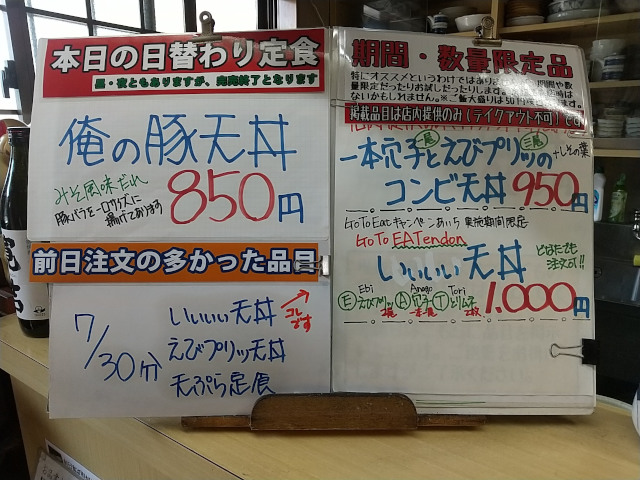 本日の日替わり定食
昼・夜ともありますが、完売終了となります
俺の豚天丼
みそ風味だれ
850円
豚バラを一口サイズに
揚げております
前日注文の多かった品目
7/30分
いいいい天丼
コレです
えびプリッツ天丼
天ぷら定食
期間・数量限定品
特にオススメというわけではありません。期間や数
量限定だったりお試しだったりします。
ないかもしれません。※ご飯大盛りは50円
掲載品目は店内提供のみ(テイクアウト不可)です
一本穴子とえびプリッツの
二尾
+しその葉
コンビ天丼 950円
GoToEatキャンペーンあいち 実施期間限定
GoTo EATendon
いいいい天丼
どなたでも
注文可!!
Ebi Anago Tori
Ⓔえびプリッツ Ⓐ穴子 Ⓣとりムネ
2尾 一本 2枚
1.000円